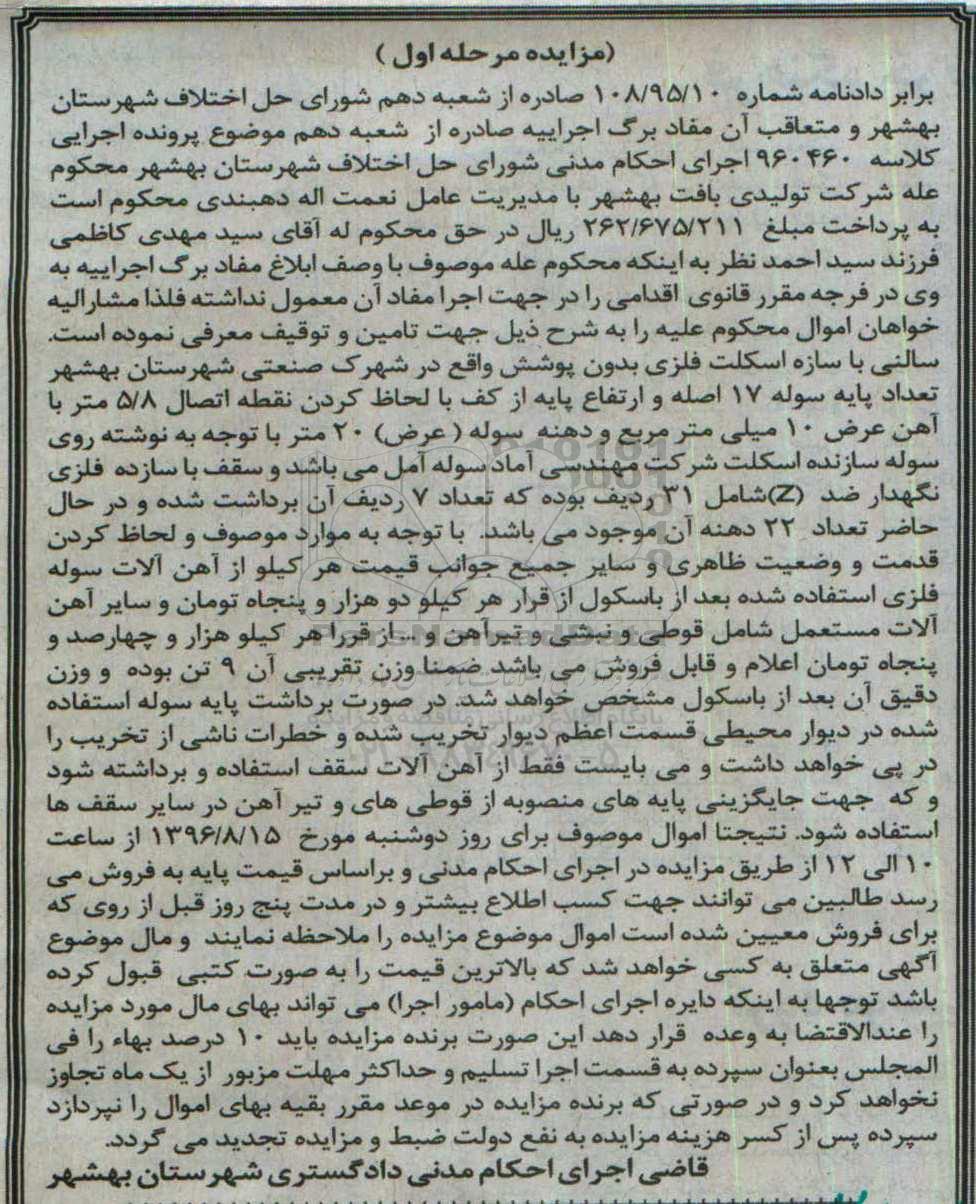 (مزایده مرحله اول)
برابر دادنامه شماره ۱۰۸/۹۵/۱۰ صادره از شعبه دهم شورای حل اختلاف شهرستان
بهشهر و متعاقب آن مفاد برگ اجراییه صادره از شعبه دهم موضوع پرونده اجرایی
کلاسه ۹۶۰۴۶۰ اجرای احکام مدنی شورای حل اختلاف شهرستان بهشهر محکوم
عله شرکت تولیدی بافت بهشهر با مدیریت عامل نعمت اله دهبندی محکوم است
به پرداخت مبلغ ۲۶۲/۶۷۵/۲۱۱ ریال در حق محکوم له آقای سید مهدی کاظمی
فرزند سید احمد نظر به اینکه محکوم عله موصوف با وصف ابلاغ مفاد برگ اجراییه به
وی در فرجه مقرر قانوی اقدامی را در جهت اجرا مفاد آن معمول نداشته فلذا مشارالیه
خواهان اموال محکوم علیه را به شرح ذیل جهت تامین و توقیف معرفی نموده است.
سالنی با سازه اسکلت فلزی بدون پوشش واقع در شهرک صنعتی شهرستان بهشهر
تعداد پایه سوله ۱۷ اصله و ارتفاع پایه از کف با لحاظ کردن نقطه اتصال ۵/۸ متر با
آهن عرض ۱۰ میلی متر مربع و دهنه سوله (عرض) ۲۰ متر با توجه به نوشته روی
سوله سازنده اسکلت شرکت مهندسی آماد سوله آمل می باشد و سقف با سازده فلزی
نگهدار ضد (Z)شامل ۳۱ ردیف بوده که تعداد ۷ ردیف آن برداشت شده و در حال
حاضر تعداد ۲۲ دهنه آن موجود می باشد. با توجه به موارد موصوف و لحاظ کردن
قدمت و وضعیت ظاهری و سایر جمیع جوانب قیمت هر کیلو از آهن آلات سوله
فلزی استفاده شده بعد از باسکول از قرار هر کیلو دو هزار و پنجاه تومان و سایر آهن
آلات مستعمل شامل قوطی و نبشی و تیرآهن و ... از قررا هر کیلو هزار و چهارصد و
پنجاه تومان اعلام و قابل فروش می باشد ضمنا وزن تقریبی آن ۹ تن بوده و وزن
دقیق آن بعد از باسکول مشخص خواهد شد. در صورت برداشت پایه سوله استفاده
شده در دیوار محیطی قسمت اعظم دیوار تخریب شده و خطرات ناشی از تخریب را
در پی خواهد داشت و می بایست فقط از آهن آلات سقف استفاده و برداشته شود
و که جهت جایگزینی پایه های منصوبه از قوطی های و تیر آهن در سایر سقف ها
استفاده شود. نتیجتا اموال موصوف برای روز دوشنبه مورخ ۱۳۹۶/۸/۱۵ از ساعت
۱۰ الی ۱۲ از طریق مزایده در اجرای احکام مدنی و براساس قیمت پایه به فروش می
رسد طالبین می توانند جهت کسب اطلاع بیشتر و در مدت پنج روز قبل از روی که
برای فروش معیین شده است اموال موضوع مزایده را ملاحظه نمایند و مال موضوع
آگهی متعلق به کسی خواهد شد که بالاترین قیمت را به صورت کتبی قبول کرده
باشد توجها به اینکه دایره اجرای احکام (مامور اجرا) می تواند بهای مال مورد مزایده
را عندالاقتضا به وعده قرار دهد این صورت برنده مزایده باید ۱۰ درصد بهاء را فی
المجلس بعنوان سپرده به قسمت اجرا تسلیم و حداکثر مهلت مزبور از یک ماه تجاوز
نخواهد کرد و در صورتی که برنده مزایده در موعد مقرر بقیه بهای اموال را نپردازد
سپرده پس از کسر هزینه مزایده به نفع دولت ضبط و مزایده تجدید می گردد.
قاضی اجرای احکام مدنی دادگستری شهرستان بهشهر